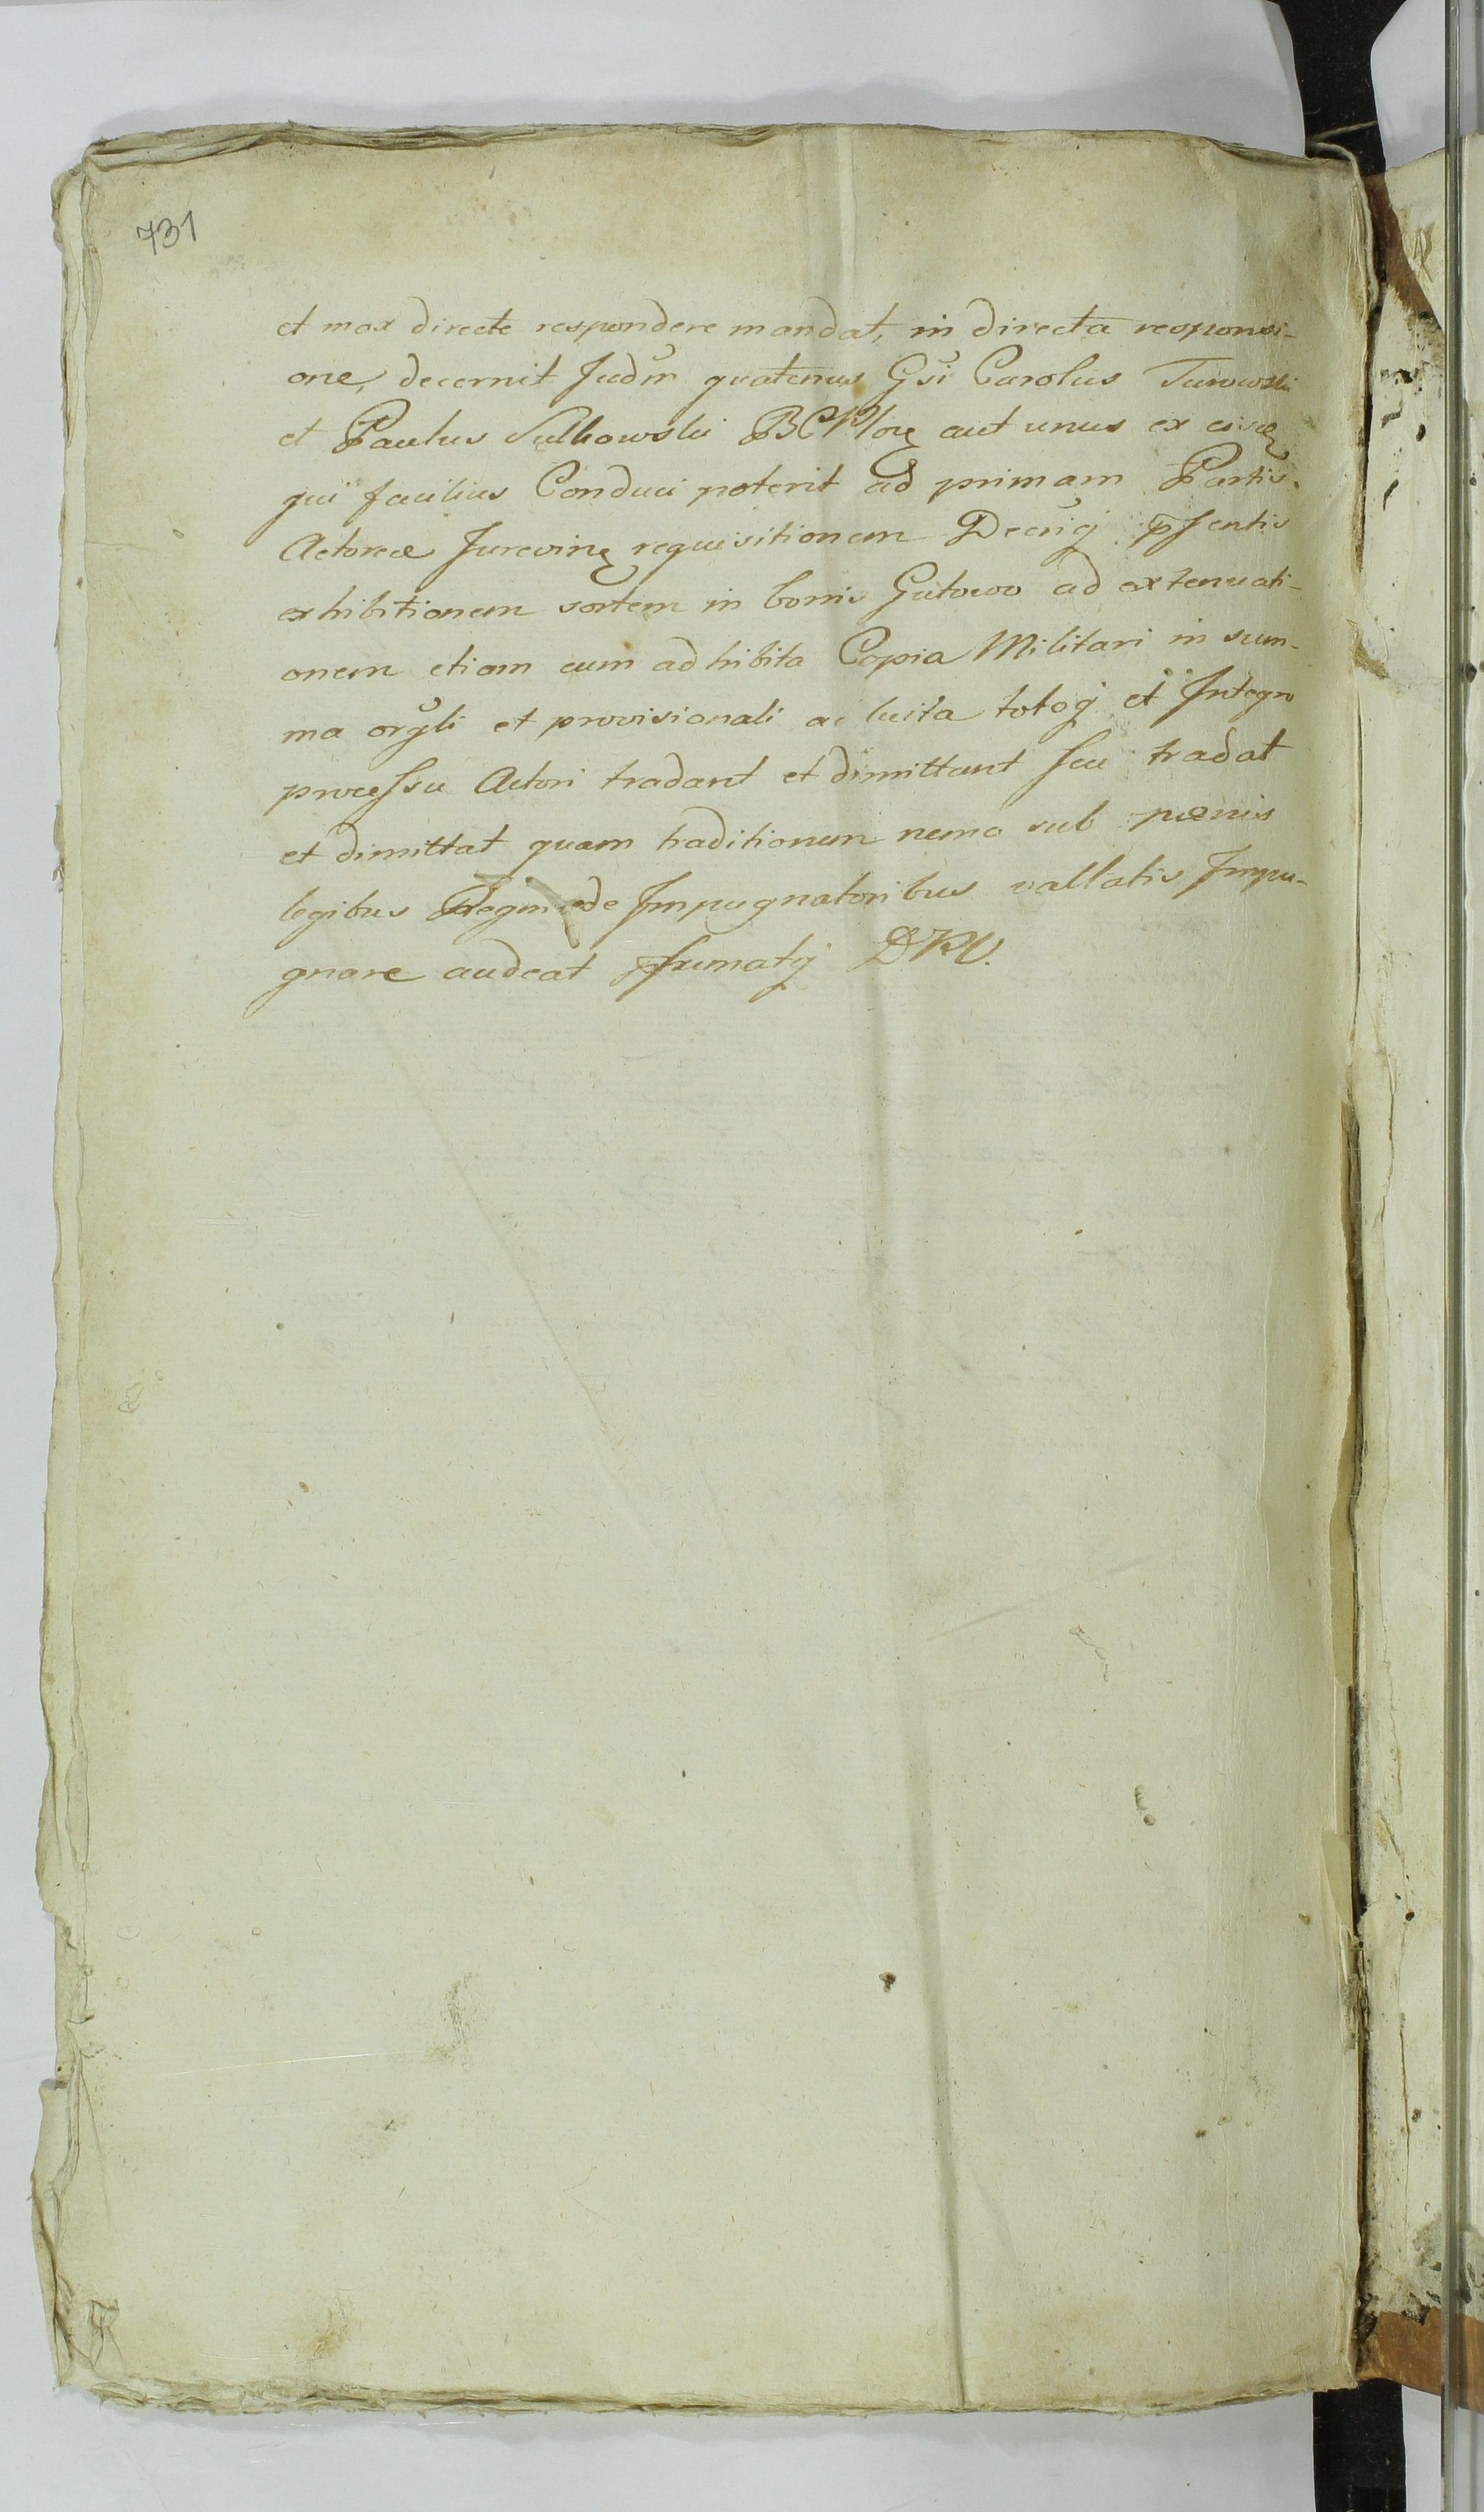 731
et mox directe respondere mandat, in directa responsi-
one, decernit Judm quatenus Gsi Carolus Turowski
et Paulus Sulkowski aut unus ex eisdẽ
qui facilius Conduci poterit ad primam Partis
Actoreæ requisitionem Decrij pſentis
exhibitionem sortem in bonis Gutowo ad extenuati-
onem etiam cum adhibita Copia Militari in sum-
ma orgli et provisionali ac luita totoq et Integro
proceſsu Actori tradant et dimittant seu tradat
et dimittat quam traditionem nemo sub pœnis
legibus Regni de Impugnatoribus vallatis Impu-
gnare audeat